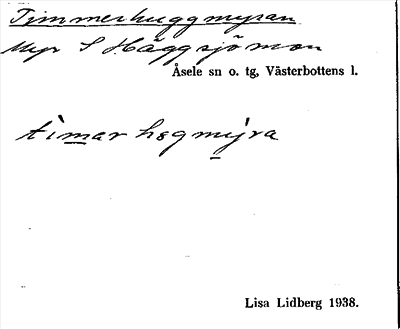 Timmerhuggmyran
Myr S Häggsjömon
Åsele sn o. tg, Västerbottens l.
timar hɞgmýra
Lisa Lidberg 1938.